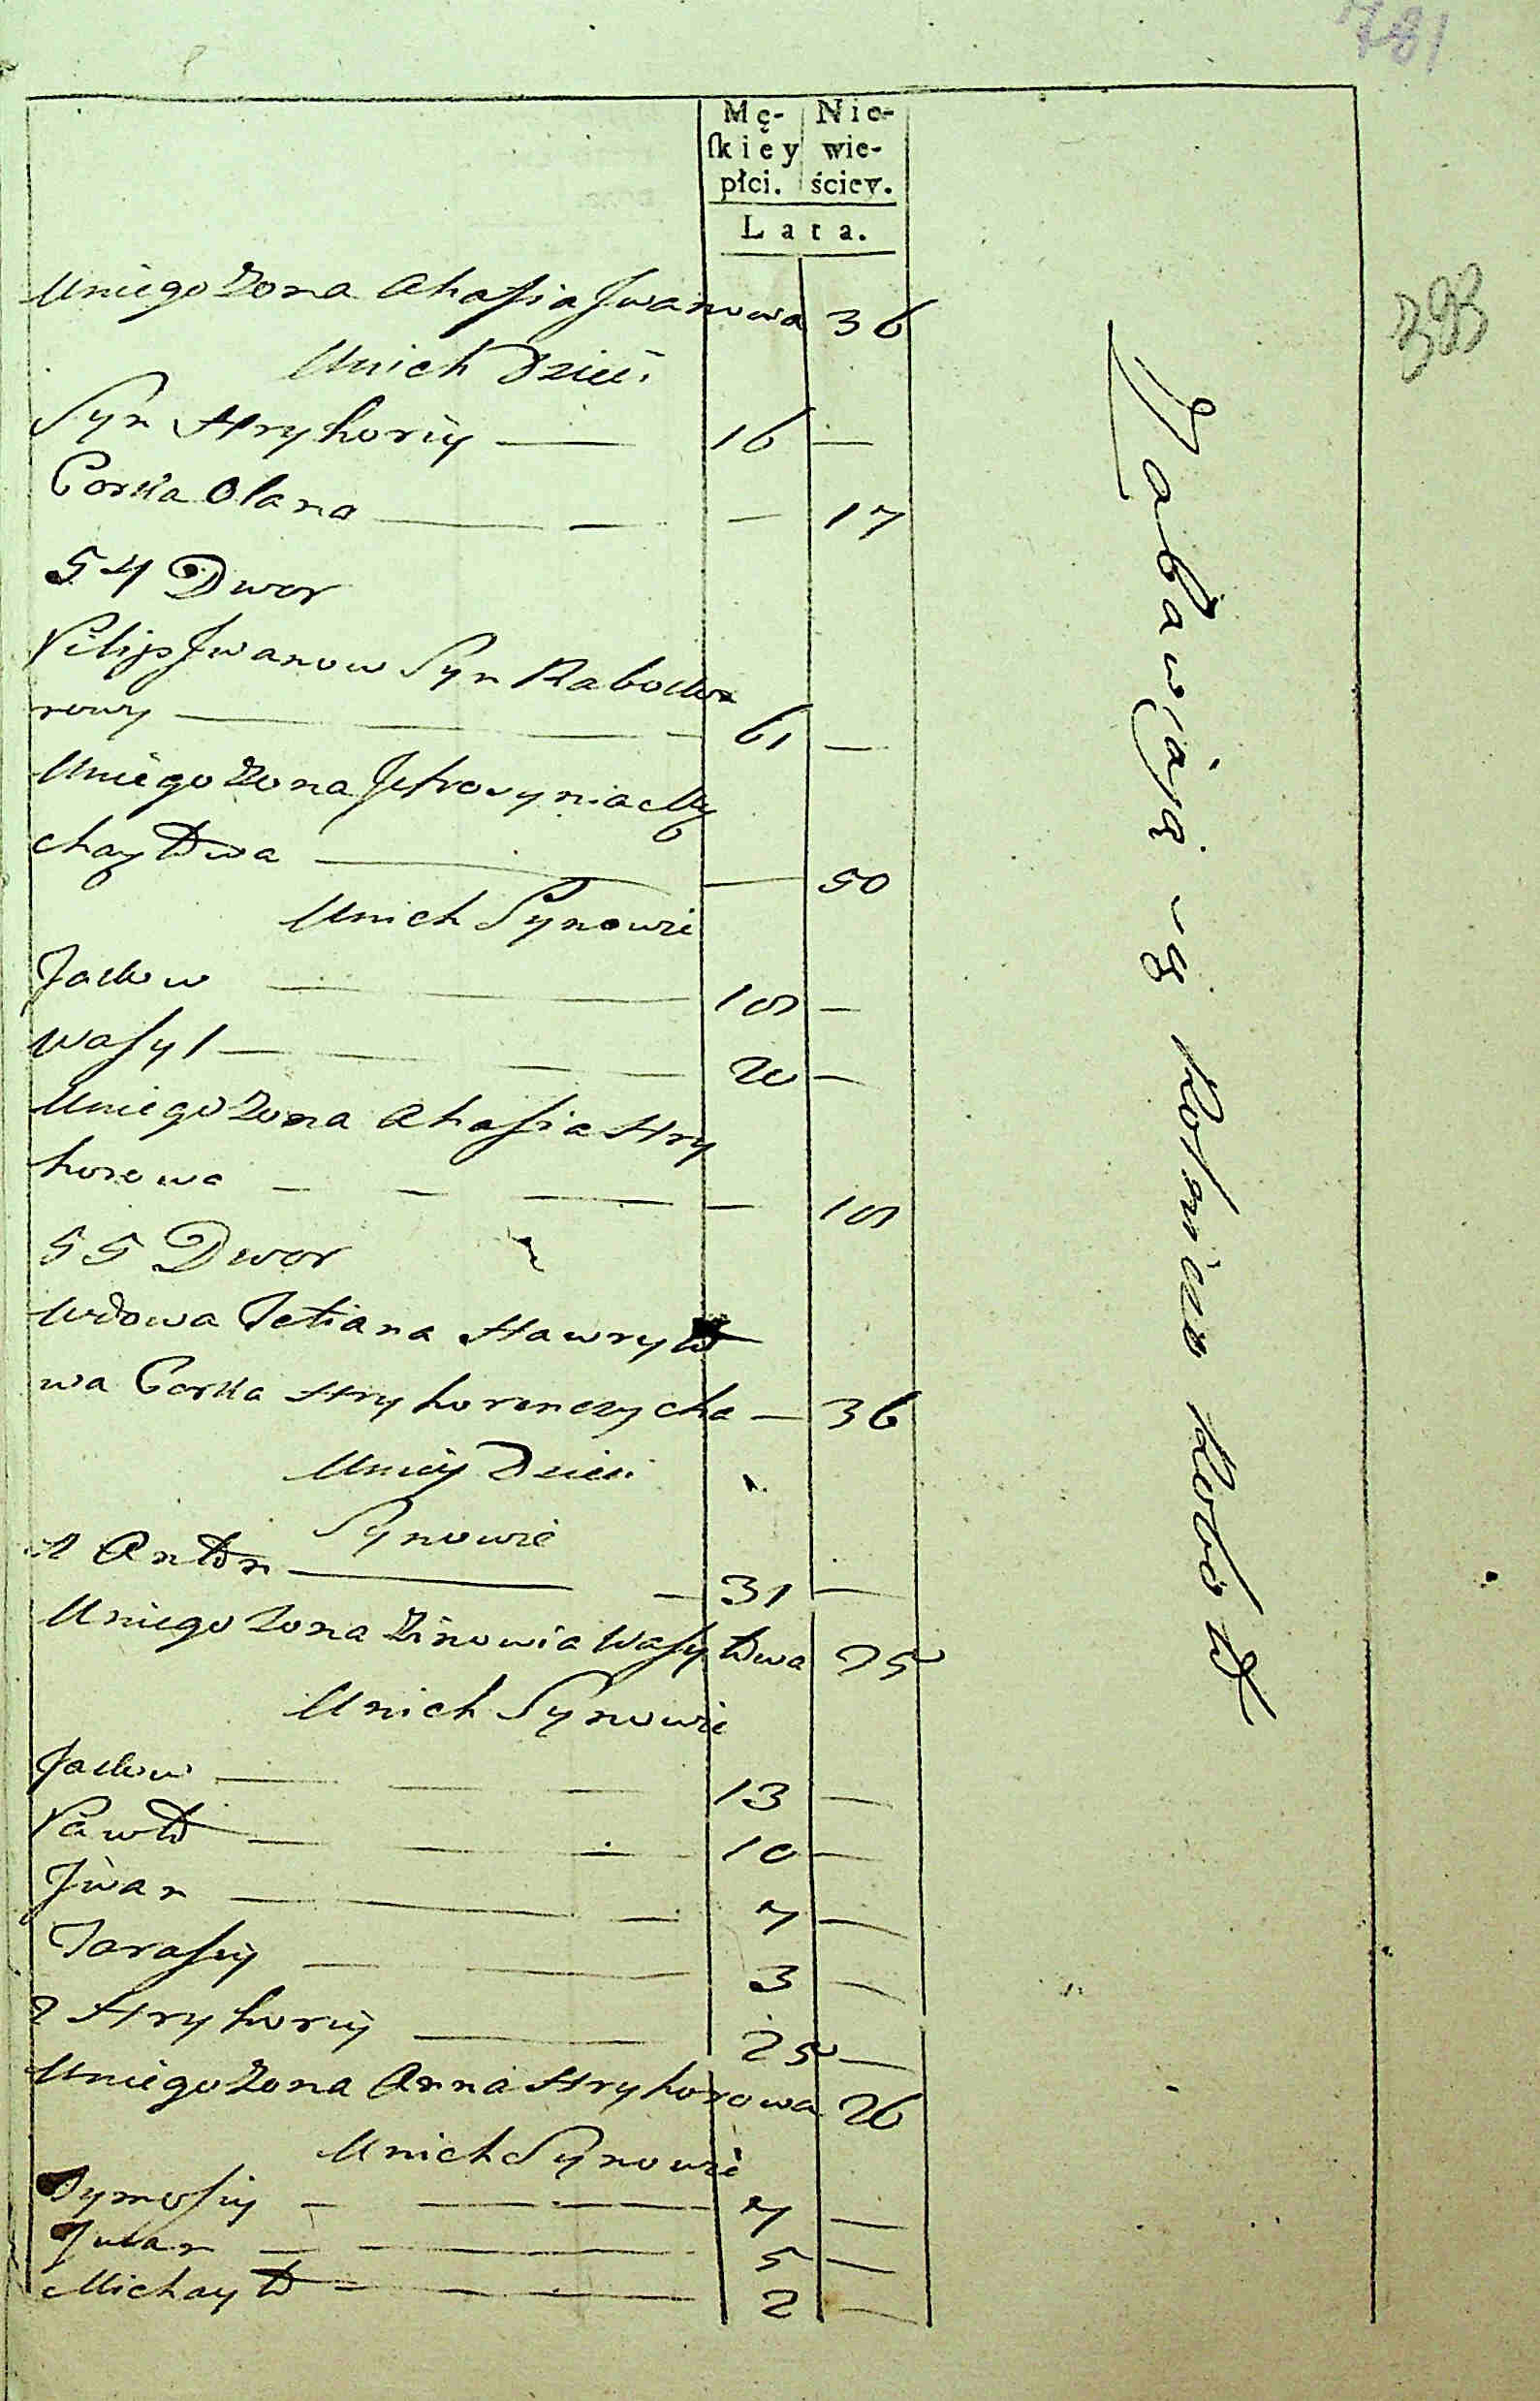 781
393
Mę- Nie-
ſkiey wie-
płci. ściey.
Lata.
Uniego Zona Ahafia Jwanowa 36
Unich Dzieci
Syn Hryhoriy — 16 —
Corka Olana — — — 17
54 Dwor
Pilip Jwanow Syn
rowy — 61 —
Uniego Zona Jefrosynia My
chayłowa — — 50
Unich Synowie
Jackow — 18 —
Wasyl — 20 —
Uniego Zona Ahafia Hry
horowa — — — 18
55 Dwor
Wdowa Tetiana Hawryło
wa Corka Hryhorenczycha — 36
Uniey Dzieci
Synowie
1 Anton — 31 —
Uniego Zona Zinowia Wasyłowa 25
Unich Synowie
Jackow — 13 —
Pawło — 10 —
Jwan — 7 —
Tarasiy — 3 —
2 Hryhoriy — 25 —
Uniego Zona Anna Hryhorowa 26
Unich Synowie
Tymosiy — 7 —
Jwan — 5 —
Michayło — 2 —
Zabawiaią się Rolniczo Robotą